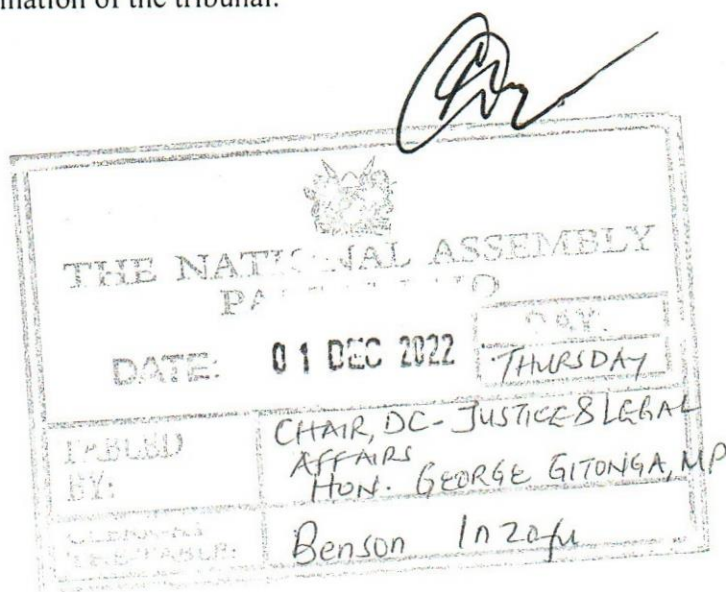 of the tribunal.
THE NATIONAL ASSEMBLY
DATE: 01 DEC 2022
DAY:
THURSDAY
TABLED
BY:
CHAIR, DC - JUSTICE & LEGAL
AFFAIRS
HON. GEORGE GITONGA, MP
Benson Inzofu